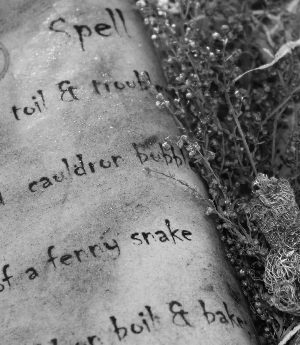 Spell
toil & trouble
cauldron bubbl
of a fenny snake
boil & bake